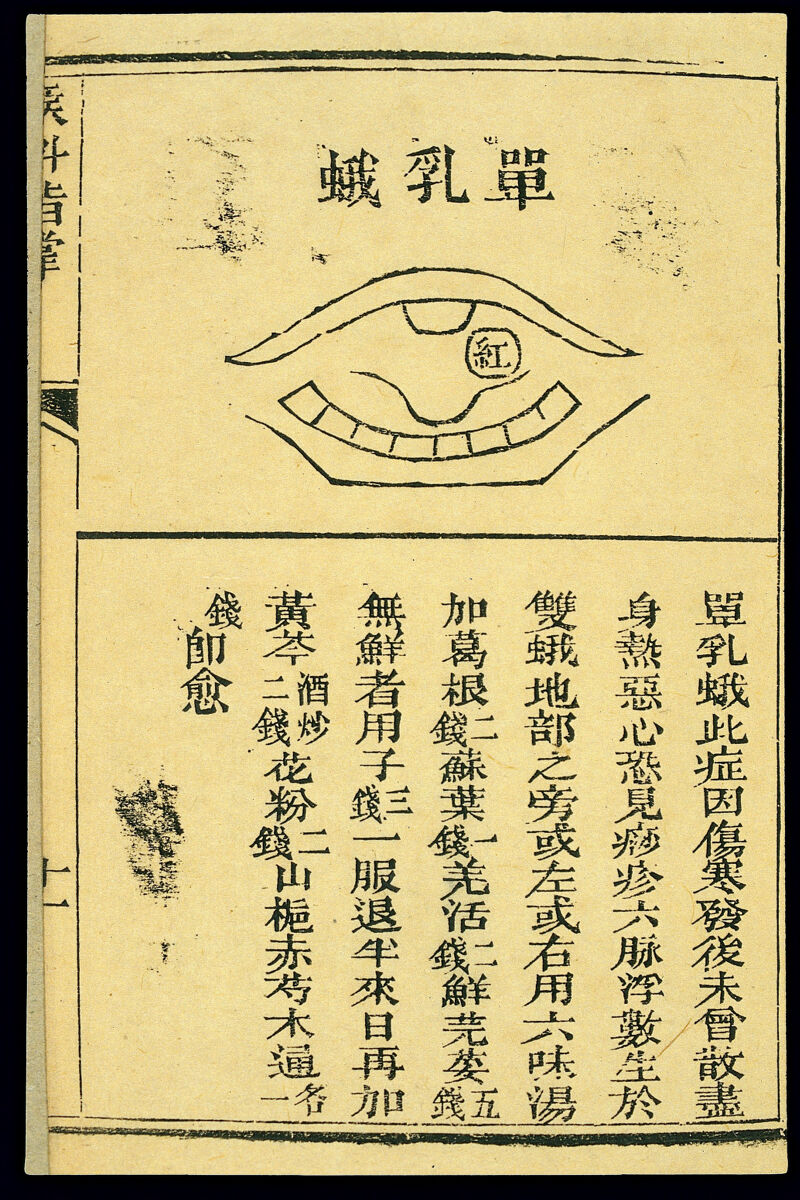 單乳蛾
紅
單乳蛾此症因傷寒發後未曾散盡
身熱惡心恐見痧疹六脉浮數生於
雙蛾地部之旁或左或右用六味湯
加葛根二錢蘇葉一錢羌活二錢鮮芫荽五錢
無鮮者用子三錢一服退半來日再加
黃芩酒炒二錢花粉二錢山梔赤芍木通各一
錢卽愈
喉科指掌
十一